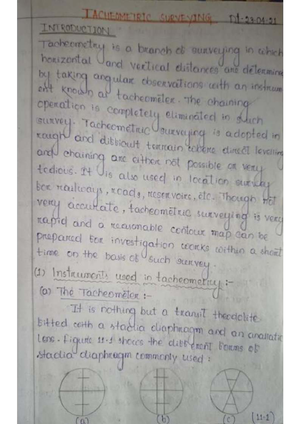 TACHEOMETRIC SURVEYING
INTRODUCTION
Tacheometry is a branch of surveying in which
horizontal and vertical distances are determine
by taking angular observations with an instrum
ent known as tacheometer. The chaining
operation is completely eliminated in such
survey. Tacheometric surveying is adopted in
rough and difficult terrain where direct levelling
and chaining are either not possible or very
tedious. It is also used in location survey
for railways, roads, reservoirs, etc. Though not
very accurate, tacheometric surveying is very
rapid and a reasonable contour map can be
prepared for investigation works within a short
time on the basis of such survey.
(1) Instruments used in tacheometry :-
(a) The Tacheometer :-
It is nothing but a transit theodolite
fitted with a stadia diaphragm and an anallatic
lens. Figure 11.1 shows the different forms of
stadia diaphragm commonly used :
(a) (b) (c) (11.1)